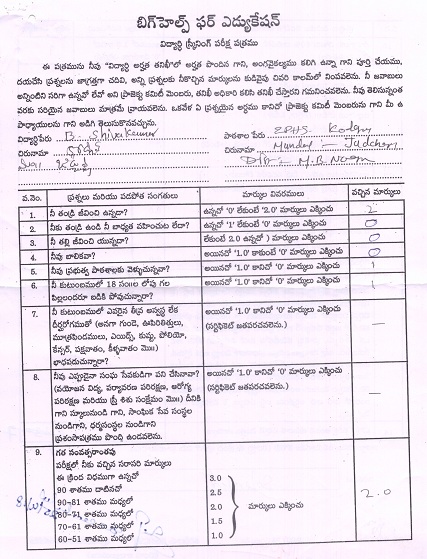 బిగ్‌హెల్ప్ ఫర్ ఎడ్యుకేషన్
విద్యార్థి స్క్రీనింగ్ పరీక్ష పత్రము
ఈ పత్రమును నీవు "విద్యార్థి అర్హత తనిఖీ"లో అర్హత పొందిన గాని, అంగవైకల్యము కలిగి ఉన్నా గాని పూర్తి చేయుము,
దయచేసి ప్రశ్నలను జాగ్రత్తగా చదివి, అన్ని ప్రశ్నలకు నీకొచ్చిన మార్కులను కుడివైపు చివరి కాలమ్‌లో నింపవలెను. నీ జవాబులు
అన్నింటిని సరిగా ఉన్నవో లేవో అని ప్రాజెక్టు కమిటీ మెంబరు, తనిఖీ అధికారి కలిసి తనిఖీ చేస్తారని గమనించవలెను. నీవు తెలుసున్నంత
వరకు సరియైన జవాబులు మాత్రమే వ్రాయవలెను. ఒకవేళ ఏ ప్రశ్నయైన అర్థము కానిచో ప్రాజెక్టు కమిటీ మెంబరును గాని మీ ఉ
పాధ్యాయులను గాని అడిగి తెలుసుకొనవచ్చును.
విద్యార్థిపేరు B. Shivakumar పాఠశాల పేరు ZPHS. Kodgay
చిరునామా చిరునామా Mandal :- Jadcherl
Dist :- M.B Nagar
వ.నెం. ప్రశ్నలు మరియు పడపోత సంగతులు మార్కుల వివరములు వచ్చిన మార్కులు
1. నీ తండ్రి జీవించి ఉన్నాడా? ఉన్నచో '0' లేకుంటే '2.0' మార్కులు ఎక్కించు 2
2. నీకు తండ్రి ఉండి నీ బాధ్యత వహించుట లేదా? ఉన్నచో '1' లేకుంటే '0' మార్కులు ఎక్కించు 0
3. నీ తల్లి జీవించి యున్నదా? లేకుంటే 2.0 ఉన్నచో ) మార్కులు ఎక్కించు 0
4. నీవు బాలికవా? అయినచో '1.0' కాకుంటే '0' మార్కులు ఎక్కించు 0
5. నీవు ప్రభుత్వ పాఠశాలకు వెళ్ళుచున్నావా? అయినచో '1.0' కానిచో '0' మార్కులు ఎక్కించు 1
6. నీ కుటుంబములో 18 సం॥ల లోపు గల అయినచో '1.0' కానిచో '0' మార్కులు ఎక్కించు 1
పిల్లలందరూ బడికి పోవుచున్నారా?
7. నీ కుటుంబములో ఎవరైన తీవ్ర అస్వస్థ లేక అయినచో '1.0' కానిచో '0' మార్కులు ఎక్కించు —
దీర్ఘరోగముతో (అనగా గుండె, ఊపిరితిత్తులు, (సర్టిఫికెట్ జతపరచవలెను.)
మూత్రపిండములు, ఎయిడ్స్, కుష్ఠు, పోలియో,
కేన్సర్, పక్షవాతం, కీళ్ళవాతం మొ॥)
బాధపడుచున్నారా?
8. నీవు ఎప్పుడైనా సంఘ సేవకుడిగా పని చేసినావా? అయినచో '1.0' కానిచో '0' మార్కులు ఎక్కించు —
(వయోజన విద్య, పర్యావరణ పరిరక్షణ, ఆరోగ్య (సర్టిఫికెట్ జతపరచవలెను.)
పరిరక్షణ మరియు స్త్రీ శిశు సంక్షేమం మొ॥) దీనికి
గాని స్కూలునుండి గాని, సాంఘిక సేవ సంస్థల
నుండిగాని, ధర్మసంస్థల నుండిగాని
ప్రశంసాపత్రము పొంది ఉండవలెను.
9. గత సంవత్సరాంతపు
పరీక్షలో నీకు వచ్చిన సరాసరి మార్కులు
ఈ క్రింద విధముగా ఉన్నచో
90 శాతము దాటినచో 3.0
90-81 శాతము మధ్యలో 2.5 2.0
80-71 శాతము మధ్యలో 2.0 మార్కులు ఎక్కించు
70-61 శాతము మధ్యలో 1.5
60-51 శాతము మధ్యలో 1.0